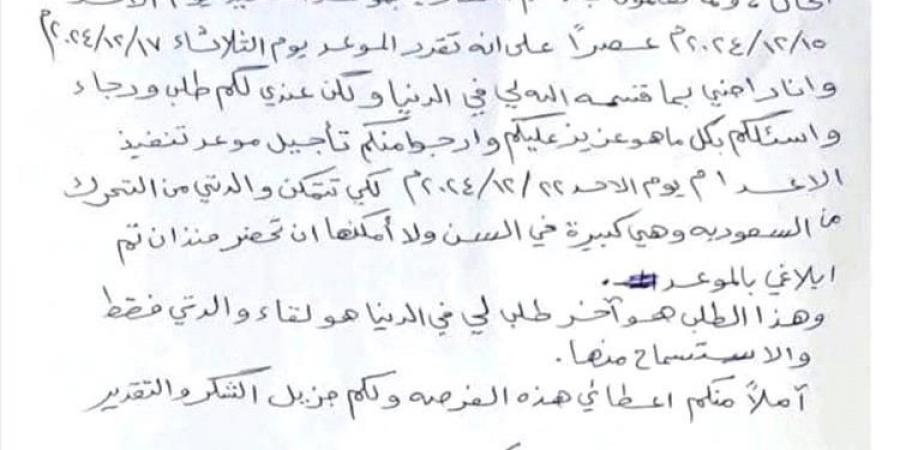 ٢٠٢٤/١٢/١٥م عصراً على انه تقرر الموعد يوم الثلاثاء ٢٠٢٤/١٢/١٧م
وانا راضي بما قسمه الله لي في الدنيا ولكن عندي لكم طلب ورجاء
واسئلكم بكل ما هو عزيز عليكم وارجوا منكم تأجيل موعد تنفيذ
الاعدام يوم الاحد ٢٠٢٤/١٢/٢٢م لكي تتمكن والدتي من التحرك
من السعوديه وهي كبيرة في السن ولا أمكنها ان تحضر منذ ان تم
ابلاغي بالموعد.
وهذا الطلب هو آخر طلب لي في الدنيا هو لقاء والدتي فقط
والاستسماح منها.
آملاً منكم اعطائي هذه الفرصه ولكم جزيل الشكر والتقدير